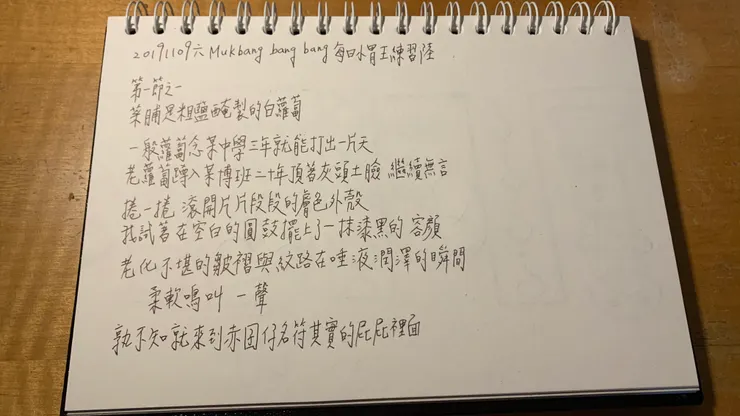 20191109六 Mukbang bang bang 每日水胃王練習陸
第一節之一
菜脯是粗鹽醃製的白蘿蔔
一般蘿蔔念菜中學三年就能打出一片天
老蘿蔔蹲入菜博班二十年頂著灰頭土臉 繼續無言
捲一捲 滾開片片段段的膚色外殼
我試著在空白的圓鼓擺上了一抹漆黑的 容顏
老化不堪的皺褶與紋路在唾液潤澤的瞬間
柔軟鳴叫 一聲
孰不知就來到赤囝仔名符其實的屁屁裡面